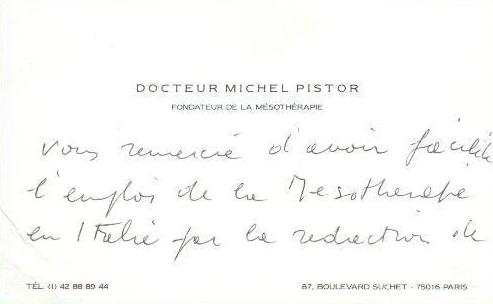 DOCTEUR MICHEL PISTOR
FONDATEUR DE LA MÉSOTHÉRAPIE
vous remercie d'avoir facilité
l'emploi de la Mesotherapie
en Italie par la redaction de
TÉL. (1) 42 88 89 44 87, BOULEVARD SUCHET - 75016 PARIS